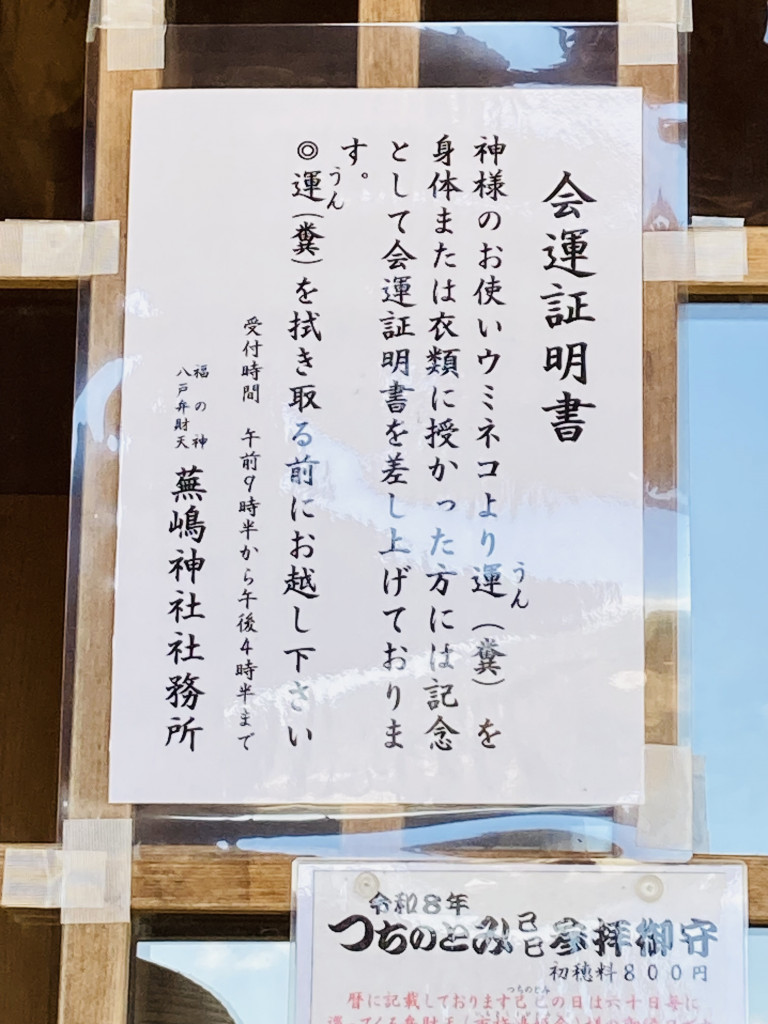 会運証明書
神様のお使いウミネコより運（糞）を
うん
身体または衣類に授かった方には記念
として会運証明書を差し上げておりま
す。
◎運（糞）を拭き取る前にお越し下さい
うん
受付時間　午前9時半から午後4時半まで
福の神
八戸弁財天
蕪嶋神社社務所
令和8年
つちのとみ己巳参拝御守
初穂料800円
つちのとみ
暦に記載しております己巳の日は六十日毎に